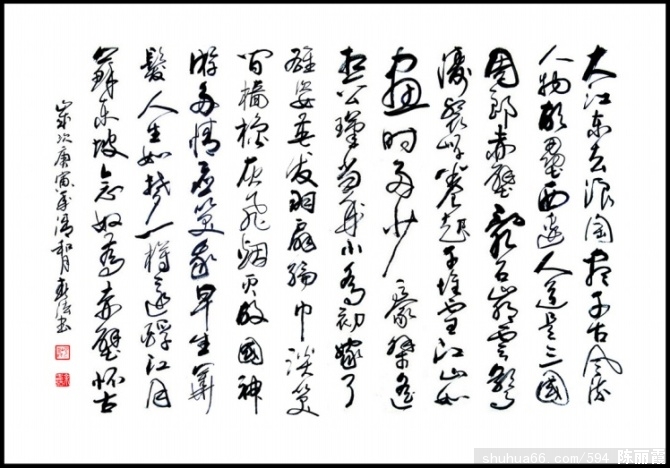 大江东去浪淘尽千古风流
人物故垒西边人道是三國
周郎赤壁乱石崩雲驚
涛裂岸卷起千堆雪江山如
畫时多少豪傑遥
想公瑾当年小乔初嫁了
雄姿英发羽扇纶巾谈笑
间樯橹灰飞烟灭故國神
游多情应笑我早生華
髮人生如梦一樽还酹江月
蘇东坡念奴娇赤壁怀古
岁次庚寅年清和月书
shuhua66.com/594 陈丽霞